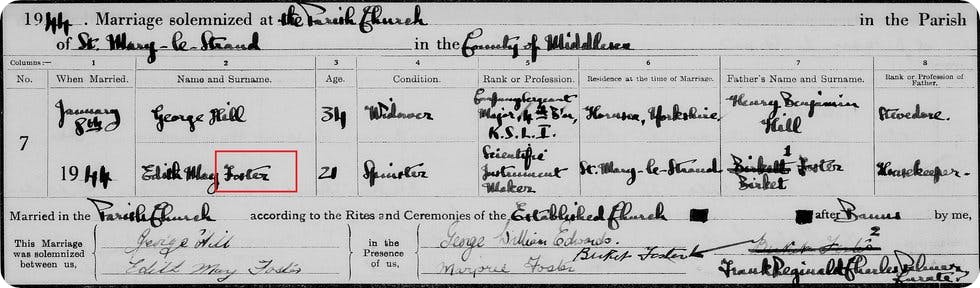 1944. Marriage solemnized at the Parish Church in the Parish
of St. Mary-le-Strand in the County of Middlesex
Columns:— 1 2 3 4 5 6 7 8
No. When Married. Name and Surname. Age. Condition. Rank or Profession. Residence at the time of Marriage. Father's Name and Surname. Rank or Profession of Father.
7
January 8th George Hill 34 Widower Company Sergeant Major, 4th B'n, K.S.L.I. Hornsea, Yorkshire. Henry Benjamin Hill Stevedore.
1944 Edith May Foster 21 Spinster Scientific Instrument Maker St. Mary-le-Strand Birkett 1 Foster Birket Housekeeper-
Married in the Parish Church according to the Rites and Ceremonies of the Established Church after Banns by me,
This Marriage was solemnized between us, George Hill in the Presence of us, George William Edwards. Birket Foster 2
Edith May Foster Marjorie Foster Birket Foster Frank Reginald Charles Palmer
Curate.